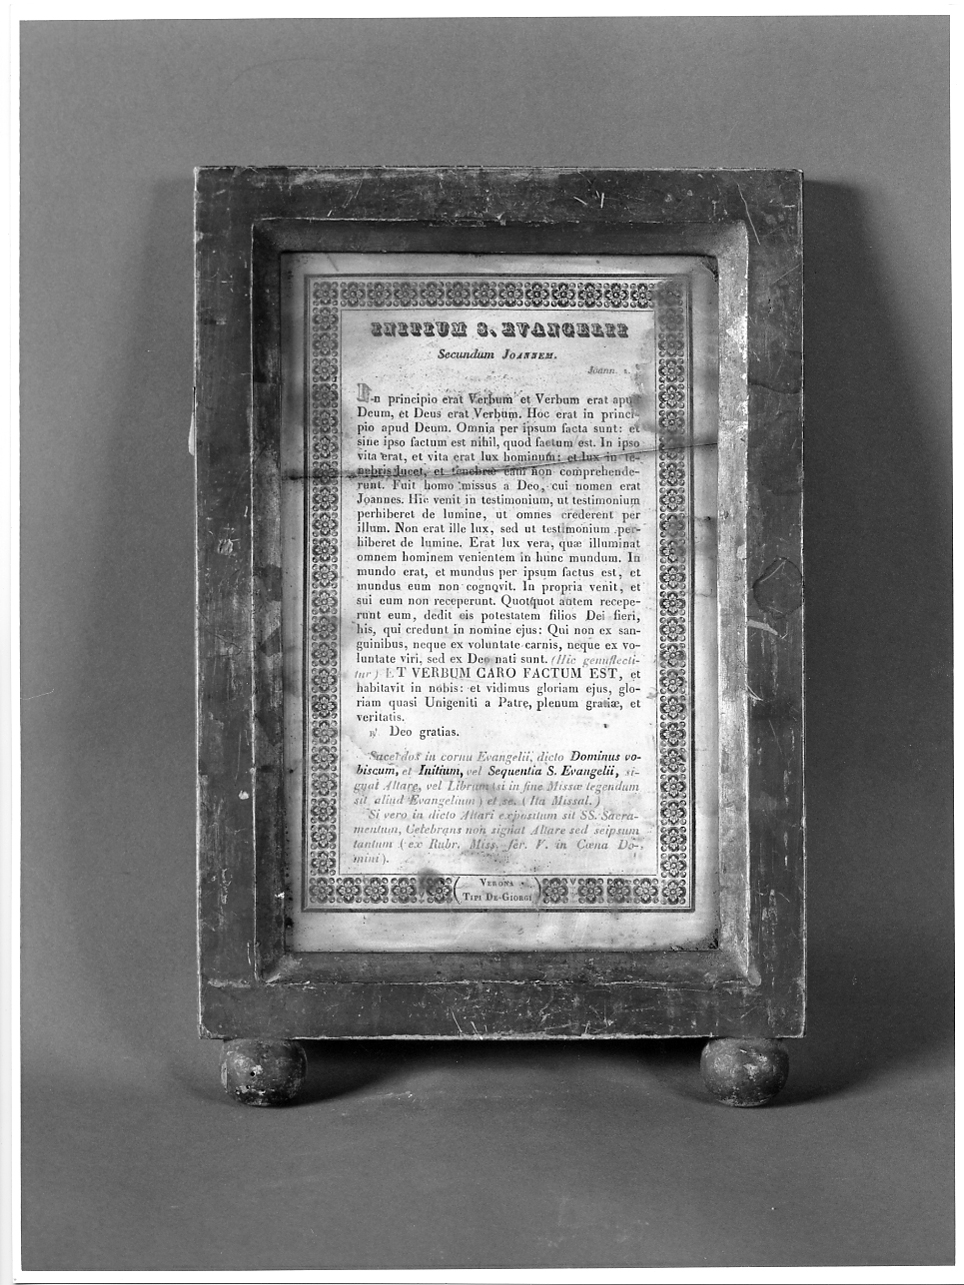 INITIUM S. EVANGELII
Secundum JOANNEM.
Joann. 1.
In principio erat Verbum et Verbum erat apud
Deum, et Deus erat Verbum. Hoc erat in princi-
pio apud Deum. Omnia per ipsum facta sunt: et
sine ipso factum est nihil, quod factum est. In ipso
vita erat, et vita erat lux hominum: et lux in te-
nebris lucet, et tenebræ eam non comprehende-
runt. Fuit homo missus a Deo, cui nomen erat
Joannes. Hic venit in testimonium, ut testimonium
perhiberet de lumine, ut omnes crederent per
illum. Non erat ille lux, sed ut testimonium per-
hiberet de lumine. Erat lux vera, quæ illuminat
omnem hominem venientem in hunc mundum. In
mundo erat, et mundus per ipsum factus est, et
mundus eum non cognovit. In propria venit, et
sui eum non receperunt. Quotquot autem recepe-
runt eum, dedit eis potestatem filios Dei fieri,
his, qui credunt in nomine ejus: Qui non ex san-
guinibus, neque ex voluntate carnis, neque ex vo-
luntate viri, sed ex Deo nati sunt. (Hic genuflecti-
tur) ET VERBUM CARO FACTUM EST, et
habitavit in nobis: et vidimus gloriam ejus, glo-
riam quasi Unigeniti a Patre, plenum gratiæ, et
veritatis.
℟ Deo gratias.
Sacerdos in cornu Evangelii, dicto Dominus vo-
biscum, et Initium, vel Sequentia S. Evangelii, si-
gnat Altare, vel Librum (si in fine Missæ legendum
sit aliud Evangelium) et se. (Ita Missal.)
Si vero in dicto Altari expositum sit SS. Sacra-
mentum, Celebrans non signat Altare sed seipsum
tantum (ex Rubr. Miss. fer. V. in Cœna Do-
mini).
VERONA
TIPI DE-GIORGI